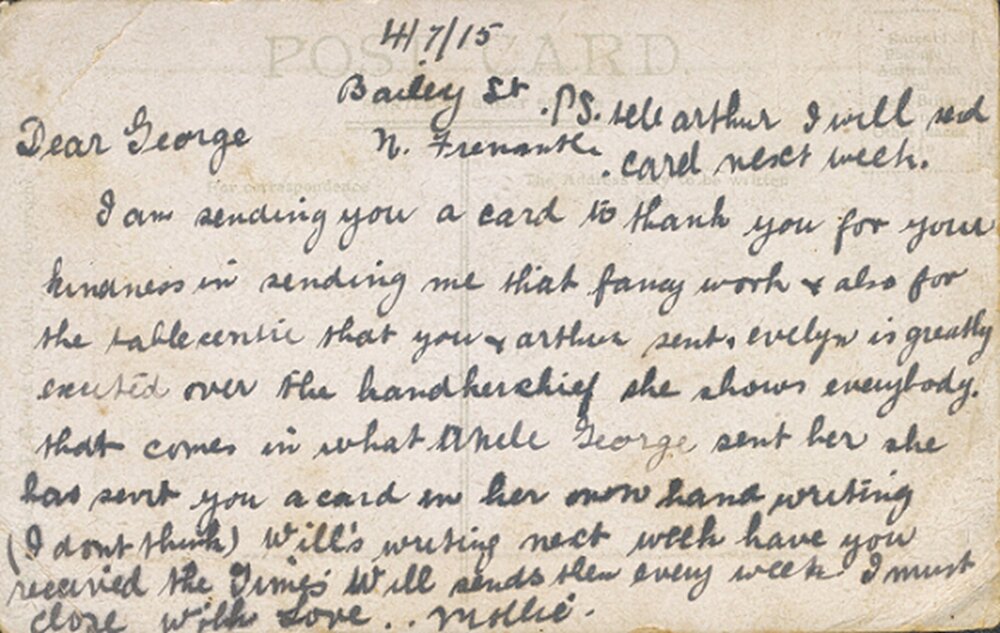 POST CARD.
4/7/15
Bailey St
N. Fremantle
Dear George
.PS. tell arthur I will send
. card next week.
For correspondence
The Address only to be written
I am sending you a card to thank you for your
kindness in sending me that fancy work & also for
the table centre that you & arthur sent. evelyn is greatly
excited over the handkerchief she shows everybody.
that comes in what Uncle George sent her she
has sent you a card in her own hand writing
(I dont think) Will's writing next week have you
received the Times Will sends them every week. I must
close with Love . . Mollie.